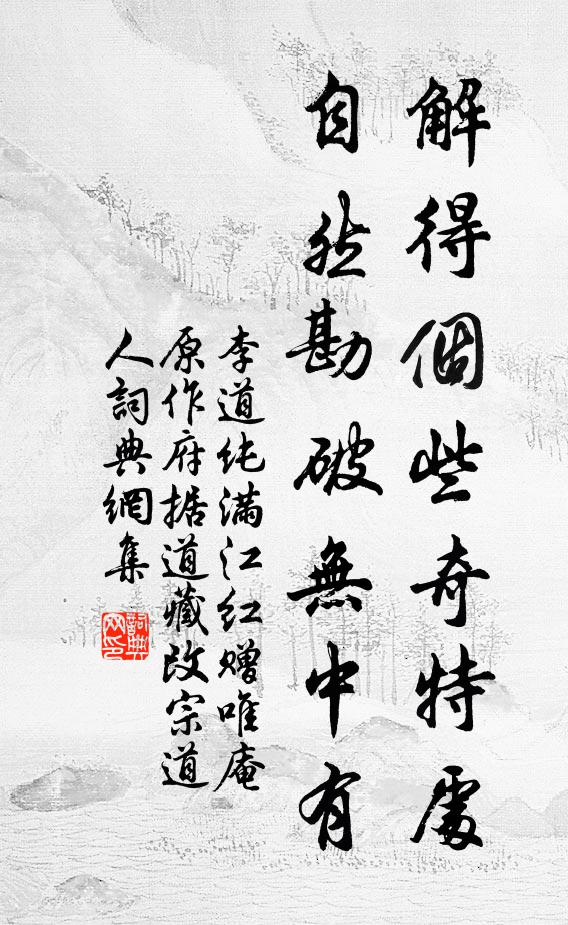 解得個些奇特處
自然勘破無中有
李道純滿江紅贈唯庵
原作府据道藏改宗道
人詞典網集
詞典網印